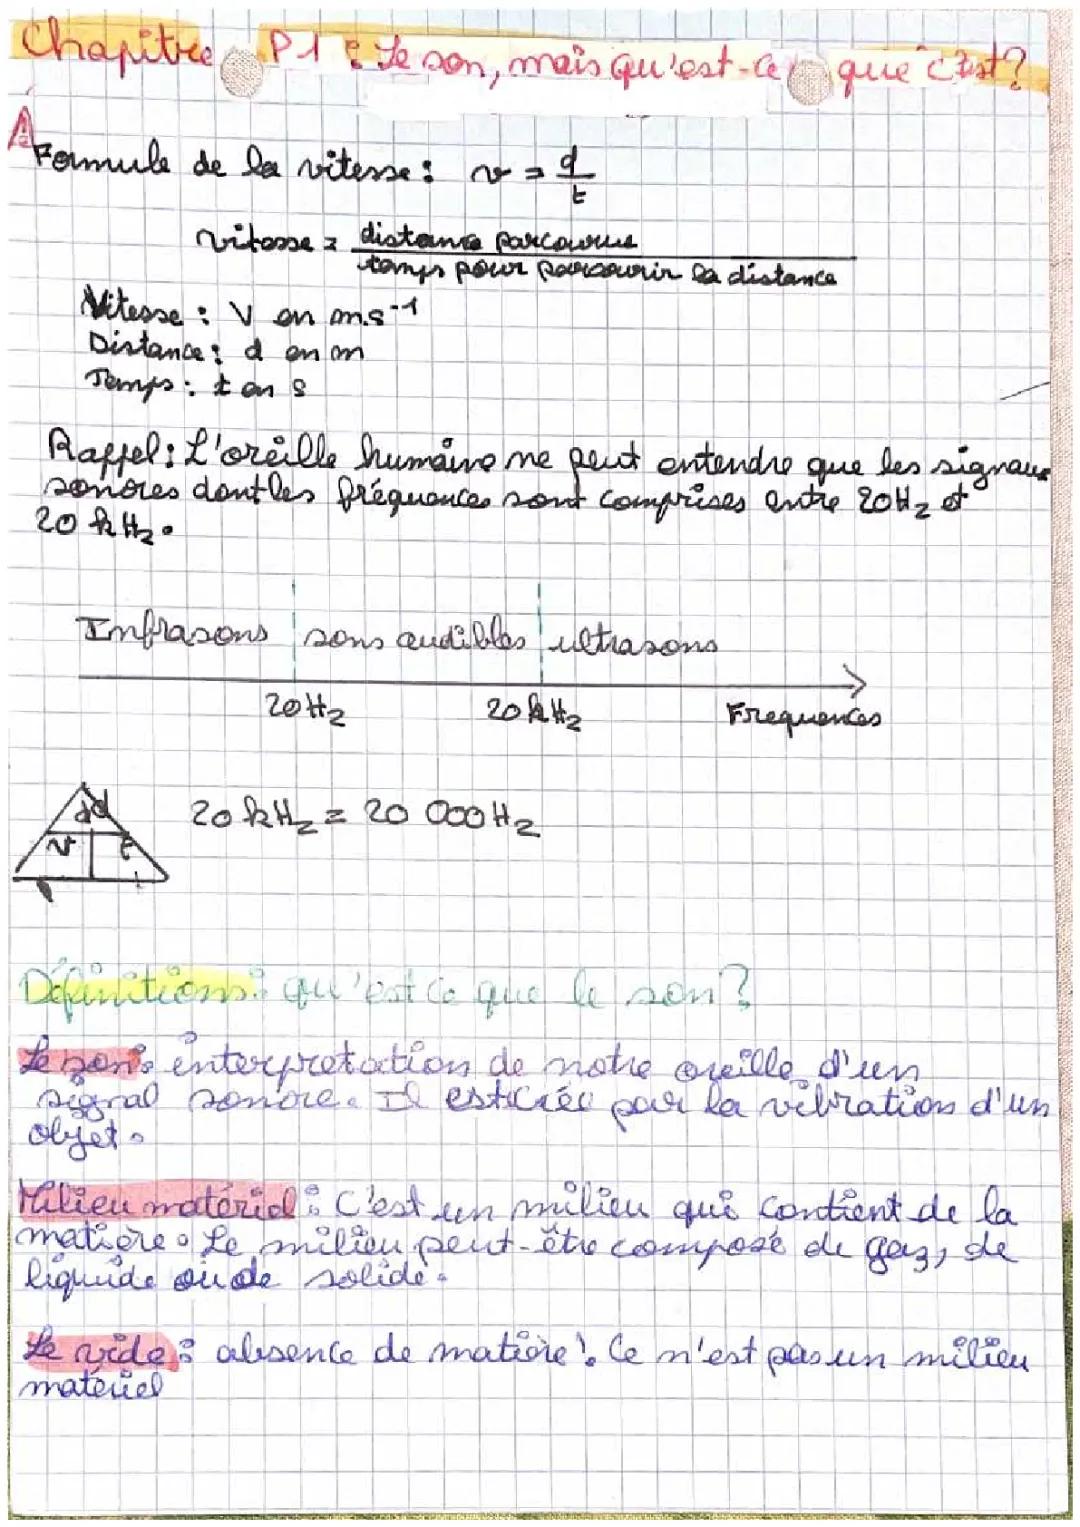 Chapitre P1 : Le son, mais qu'est-ce que c'est ?
A
Formule de la vitesse : v = d/t
vitesse = distance parcourue / temps pour parcourir la distance
Vitesse : V en m.s⁻¹
Distance : d en m
Temps : t en s
Rappel : L'oreille humaine ne peut entendre que les signaux
sonores dont les fréquences sont comprises entre 20Hz et
20 kHz.
Infrasons sons audibles ultrasons
20Hz 20kHz Frequences
d
v t
20 kHz = 20 000 Hz
Définitions : qu'est ce que le son ?
Le son : interpretation de notre oreille d'un
signal sonore. Il est créé par la vibration d'un
objet.
Milieu matériel : C'est un milieu qui contient de la
matière. Le milieu peut-être composé de gaz, de
liquide ou de solide.
Le vide : absence de matière. Ce n'est pas un milieu
materiel